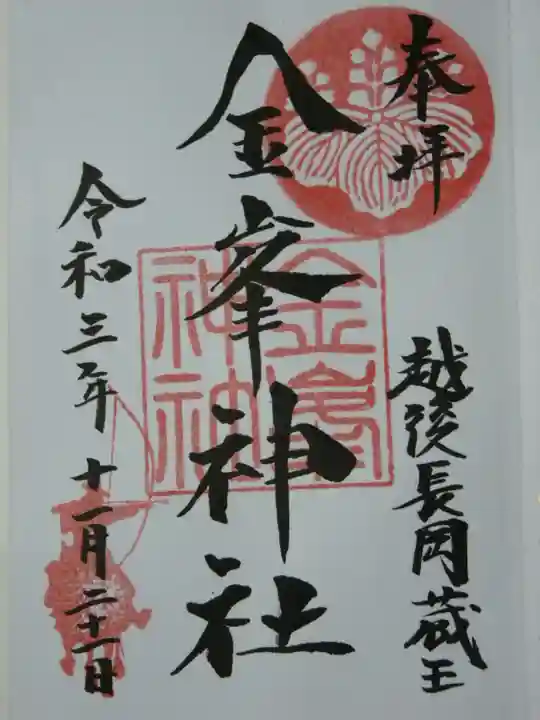 奉拝
越後長岡蔵王
金峯神社
金峯神社
令和三年十一月二十一日